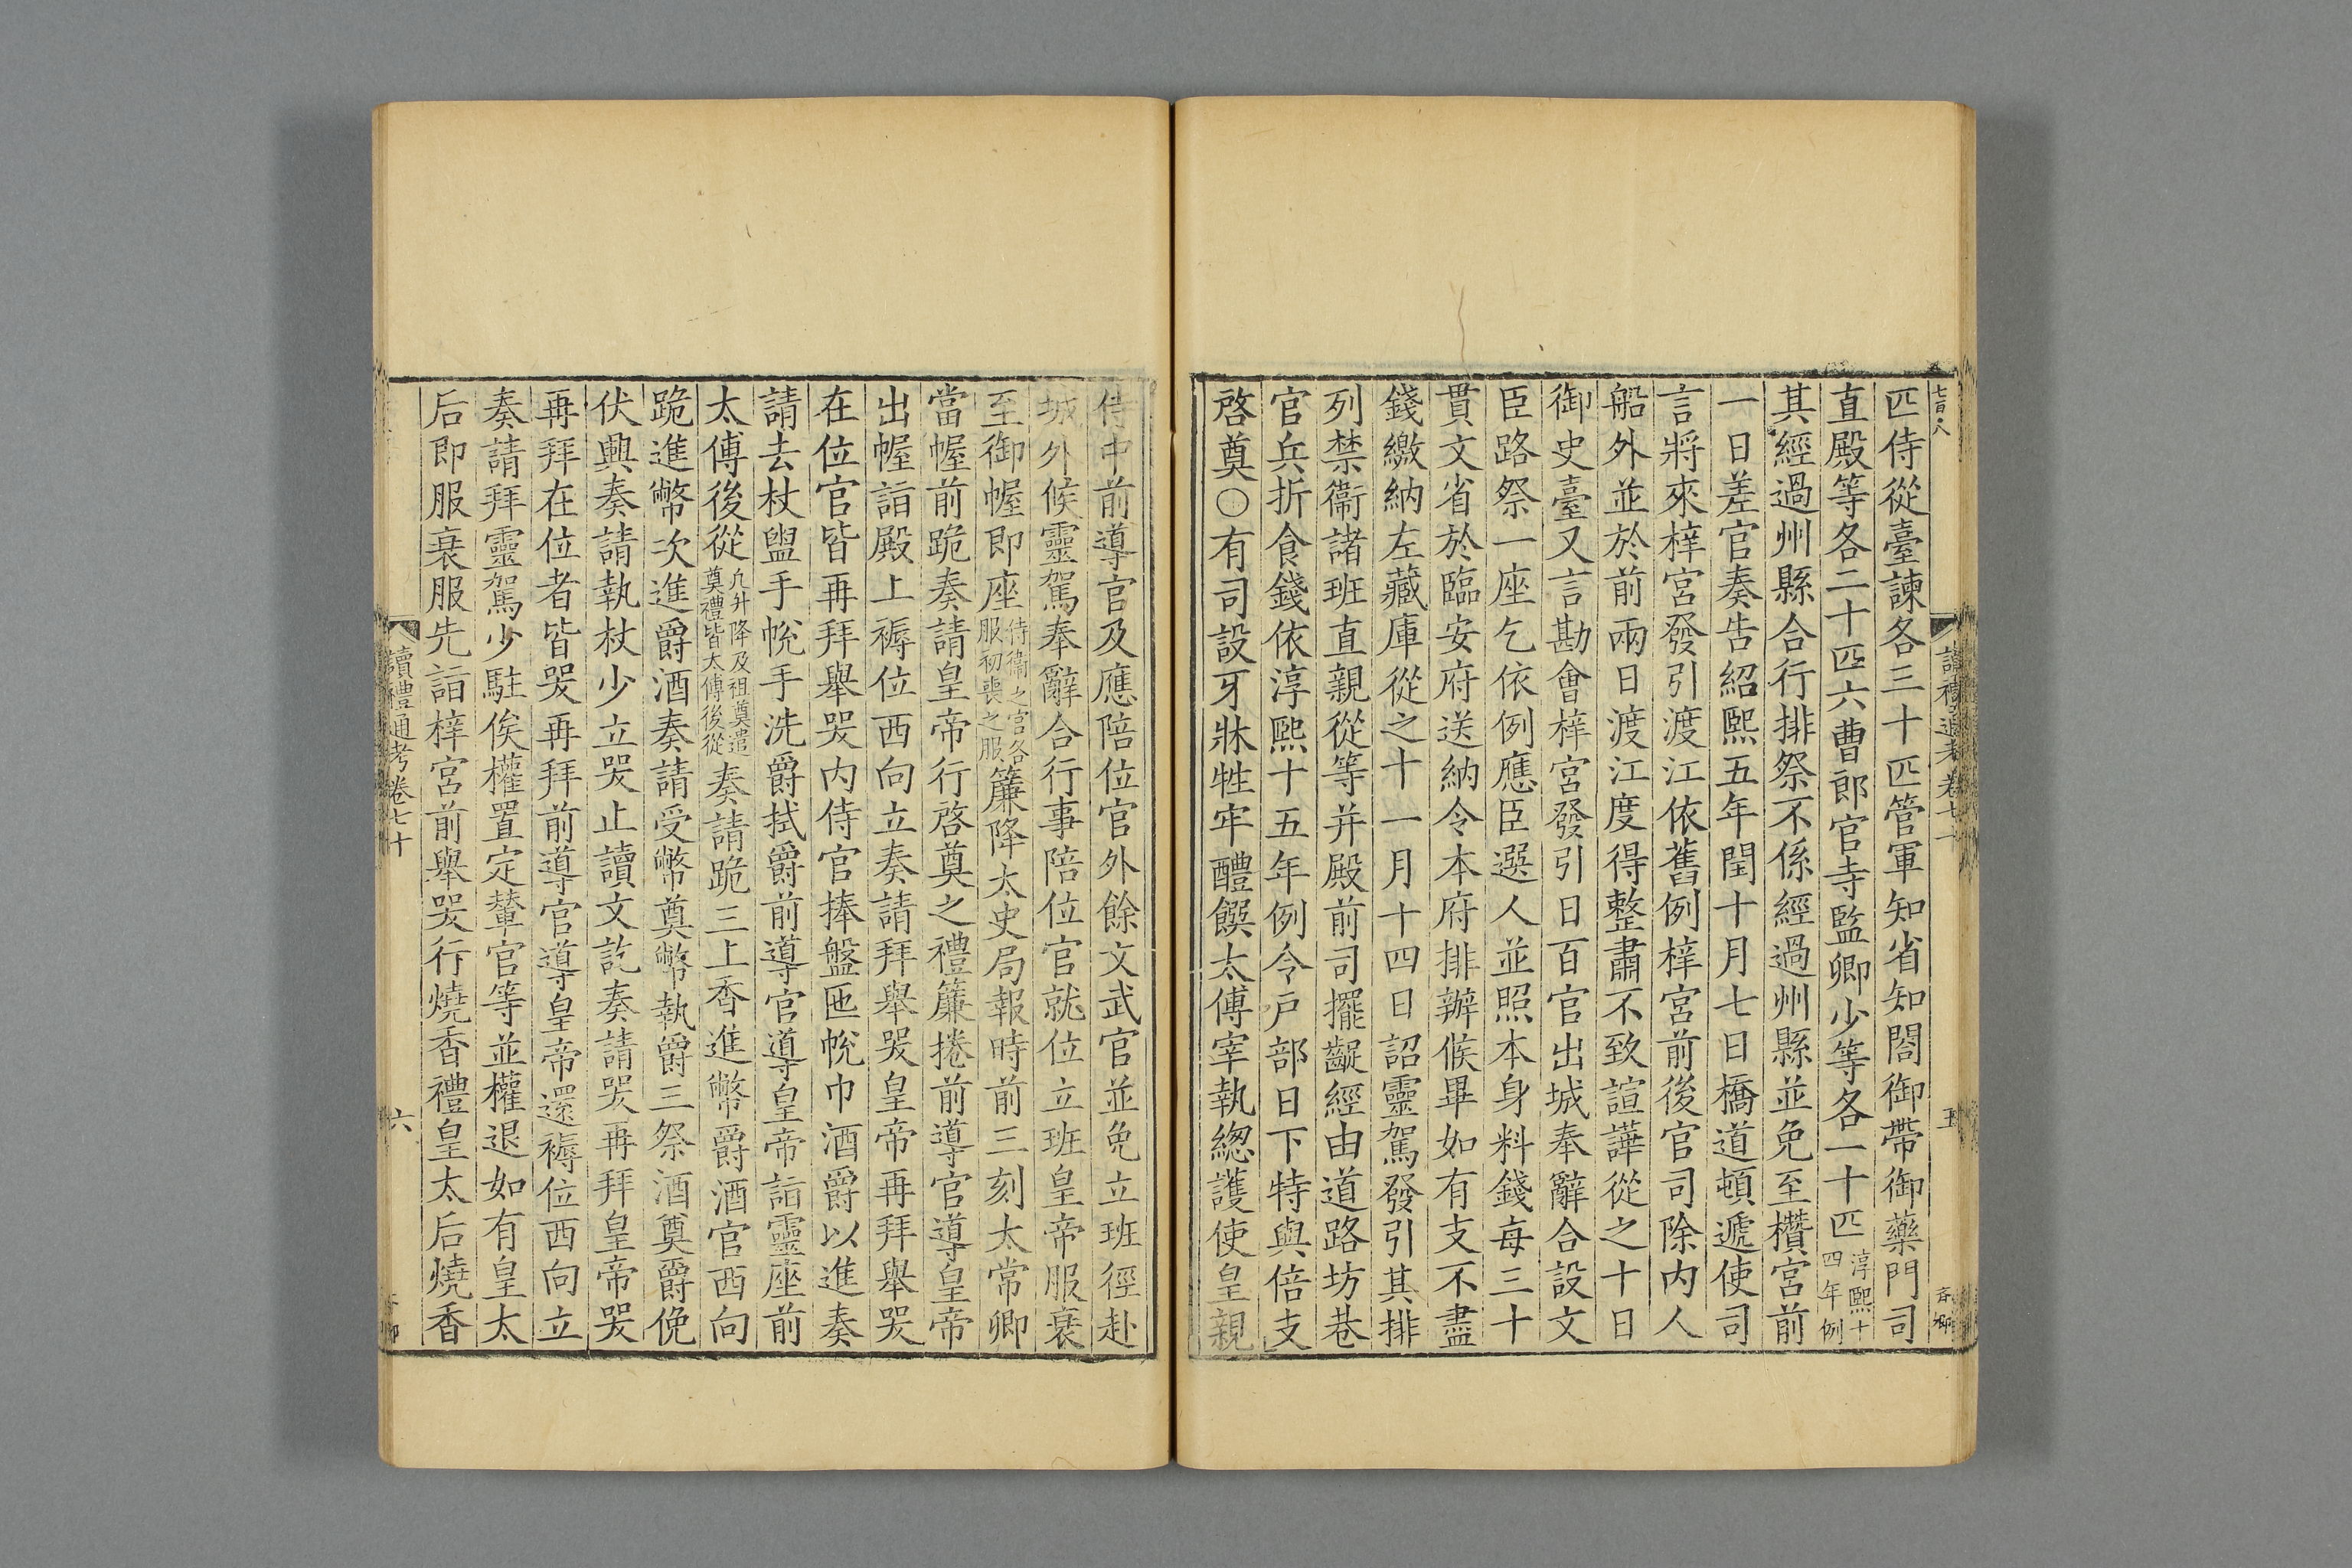 匹侍從臺諫各三十匹管軍知省知閤御帶御藥門司
直殿等各二十匹六曹郎官寺監卿少等各一十匹淳熙十四年例
其經過州縣合行排祭不係經過州縣並免至欑宮前
一日差官奏告紹熙五年閏十月七日橋道頓遞使司
言將來梓宮發引渡江依舊例梓宮前後官司除内人
船外並於前兩日渡江度得整肅不致諠譁從之十日
御史臺又言勘會梓宮發引日百官出城奉辭合設文
臣路祭一座乞依例應臣選人並照本身料錢每三十
貫文省於臨安府送納令本府排辦候畢如有支不盡
錢繳納左藏庫從之十一月十四日詔靈駕發引其排
列禁衞諸班直親從等并殿前司擺齪經由道路坊巷
官兵折食錢依淳熙十五年例令户部日下特與倍支
啓奠○有司設牙牀牲牢醴饌太傅宰執緫護使皇親
侍中前導官及應陪位官外餘文武官並免立班徑赴
城外候靈駕奉辭合行事陪位官就位立班皇帝服衰
至御幄即座侍衞之官各服初喪之服簾降太史局報時前三刻太常卿
當幄前跪奏請皇帝行啓奠之禮簾捲前導官導皇帝
出幄詣殿上褥位西向立奏請拜舉哭皇帝再拜舉哭
在位官皆再拜舉哭内侍官捧盤匜帨巾酒爵以進奏
請去杖盥手帨手洗爵拭爵前導官導皇帝詣靈座前
太傅後從凡升降及祖奠遣奠禮皆太傅後從奏請跪三上香進幣爵酒官西向
跪進幣次進爵酒奏請受幣奠幣執爵三祭酒奠爵俛
伏興奏請執杖少立哭止讀文訖奏請哭再拜皇帝哭
再拜在位者皆哭再拜前導官導皇帝還褥位西向立
奏請拜靈駕少駐俟權置定輦官等並權退如有皇太
后即服衰服先詣梓宮前舉哭行燒香禮皇太后燒香
讀禮通考卷七十
六